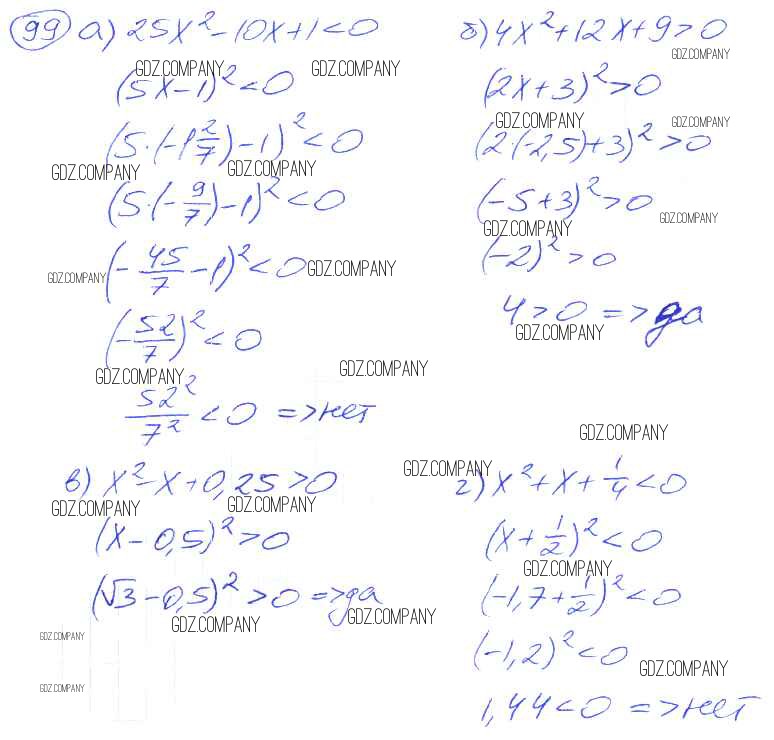 99 а) 25x² - 10x + 1 < 0
GDZ.COMPANY GDZ.COMPANY
(5x - 1)² < 0
(5·(-1 2/7) - 1)² < 0
GDZ.COMPANY GDZ.COMPANY
(5·(-9/7) - 1)² < 0
(-45/7 - 1)² < 0
GDZ.COMPANY GDZ.COMPANY
(-52/7)² < 0
GDZ.COMPANY GDZ.COMPANY
52²/7² < 0 => нет
б) 4x² + 12x + 9 > 0
GDZ.COMPANY
(2x + 3)² > 0
GDZ.COMPANY GDZ.COMPANY
(2·(-2,5) + 3)² > 0
(-5 + 3)² > 0
GDZ.COMPANY GDZ.COMPANY
(-2)² > 0
4 > 0 => да
GDZ.COMPANY
GDZ.COMPANY
в) x² - x + 0,25 > 0
GDZ.COMPANY GDZ.COMPANY
(x - 0,5)² > 0
(√3 - 0,5)² > 0 => да
GDZ.COMPANY GDZ.COMPANY
GDZ.COMPANY
GDZ.COMPANY
GDZ.COMPANY
г) x² + x + 1/4 < 0
(x + 1/2)² < 0
GDZ.COMPANY
(-1,7 + 1/2)² < 0
(-1,2)² < 0
GDZ.COMPANY
1,44 < 0 => нет